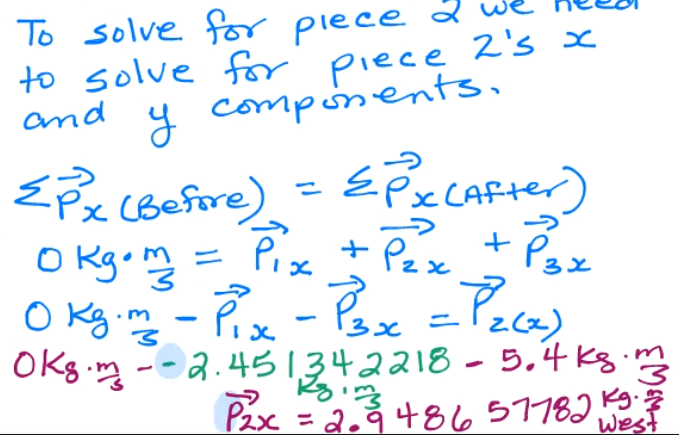 To solve for piece 2 we need
to solve for piece 2's x
and y components.
ΣP⃗x (Before) = ΣP⃗x (After)
0 Kg·m/s = P⃗1x + P⃗2x + P⃗3x
0 Kg·m/s - P⃗1x - P⃗3x = P⃗2(x)
0Kg·m/s - -2.451342218 Kg·m/s - 5.4 Kg·m/s
P⃗2x = 2.948657782 Kg·m/s west